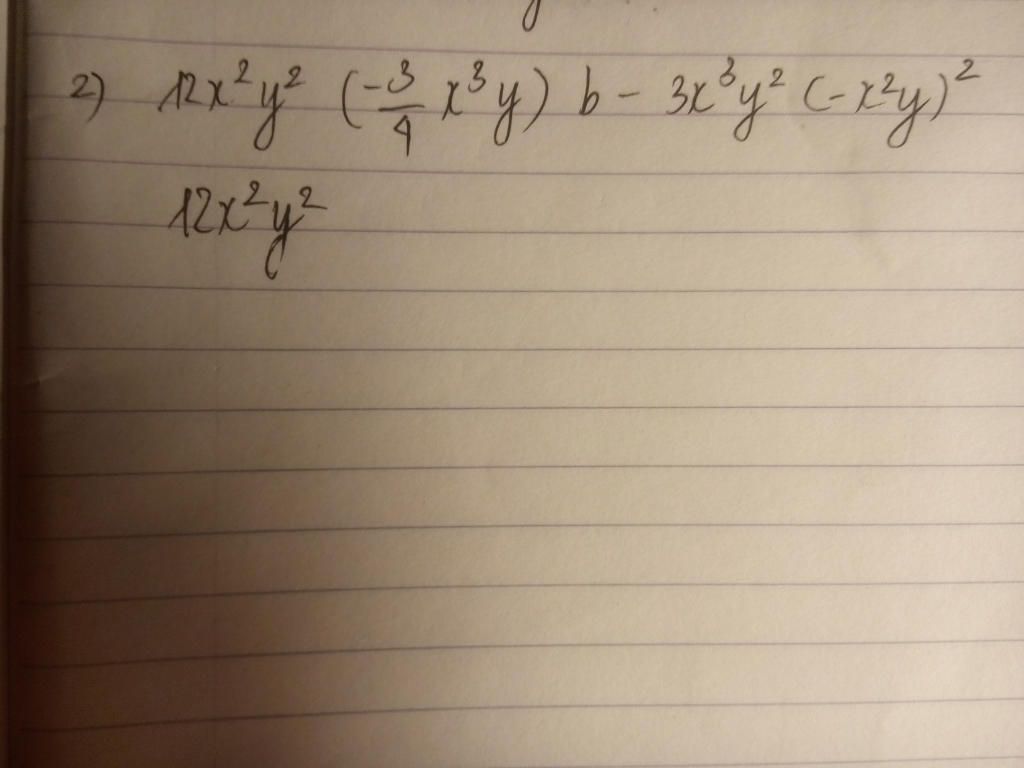 2) 12x²y² (-3/4 x³y) b - 3x³y² (-x²y)²
12x²y²